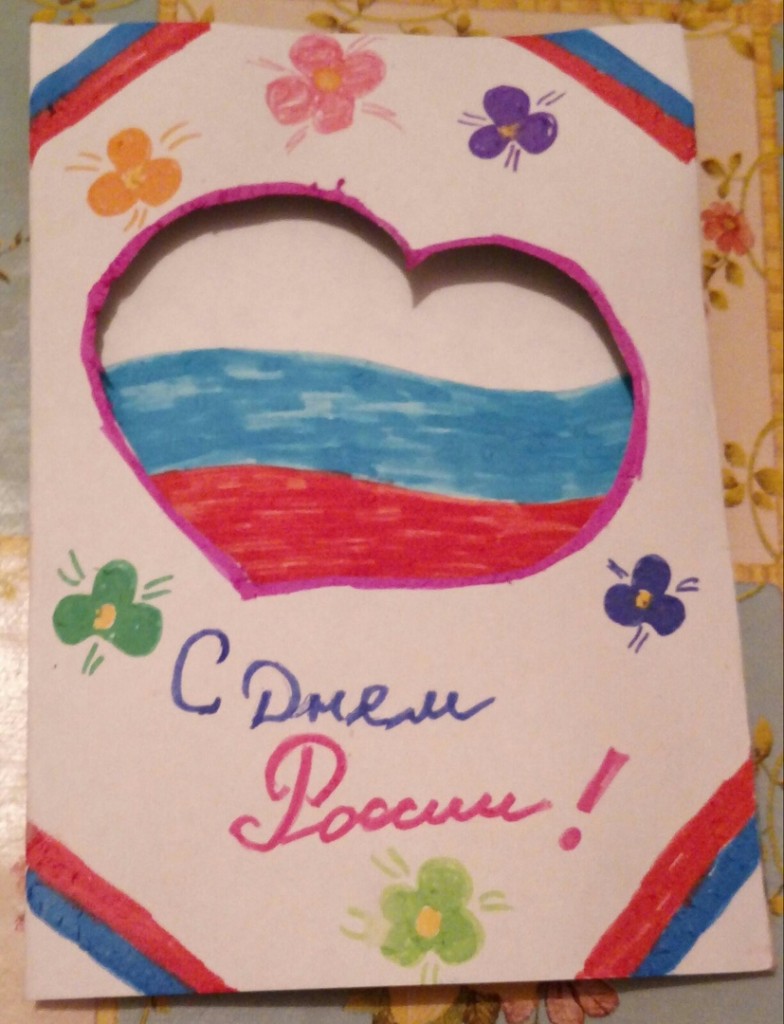 С Днем
России!